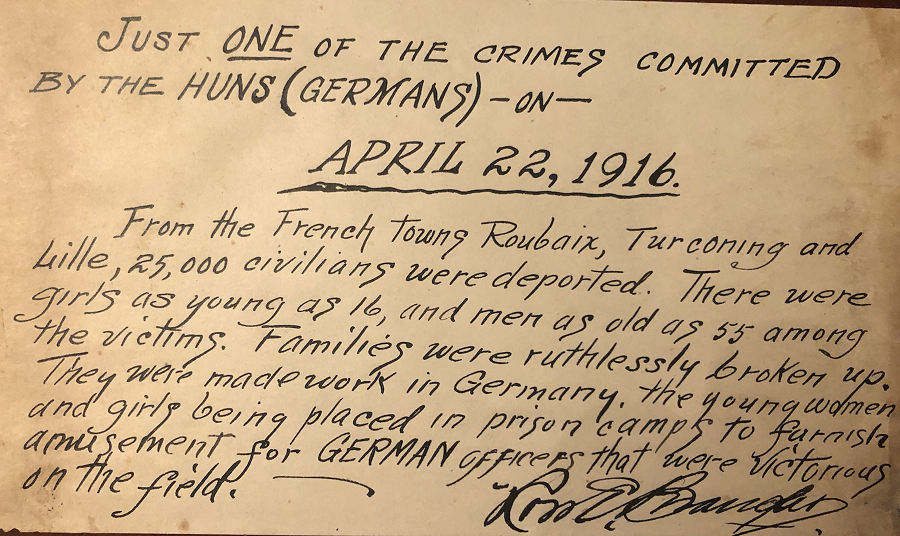 JUST ONE OF THE CRIMES COMMITTED
BY THE HUNS (GERMANS) - ON -
APRIL 22, 1916.
From the French towns Roubaix, Turconing and
Lille, 25,000 civilians were deported. There were
girls as young as 16, and men as old as 55 among
the victims. Families were ruthlessly broken up.
They were made work in Germany. the young women
and girls being placed in prison camps to furnish
amusement for GERMAN officers that were victorious
on the field.